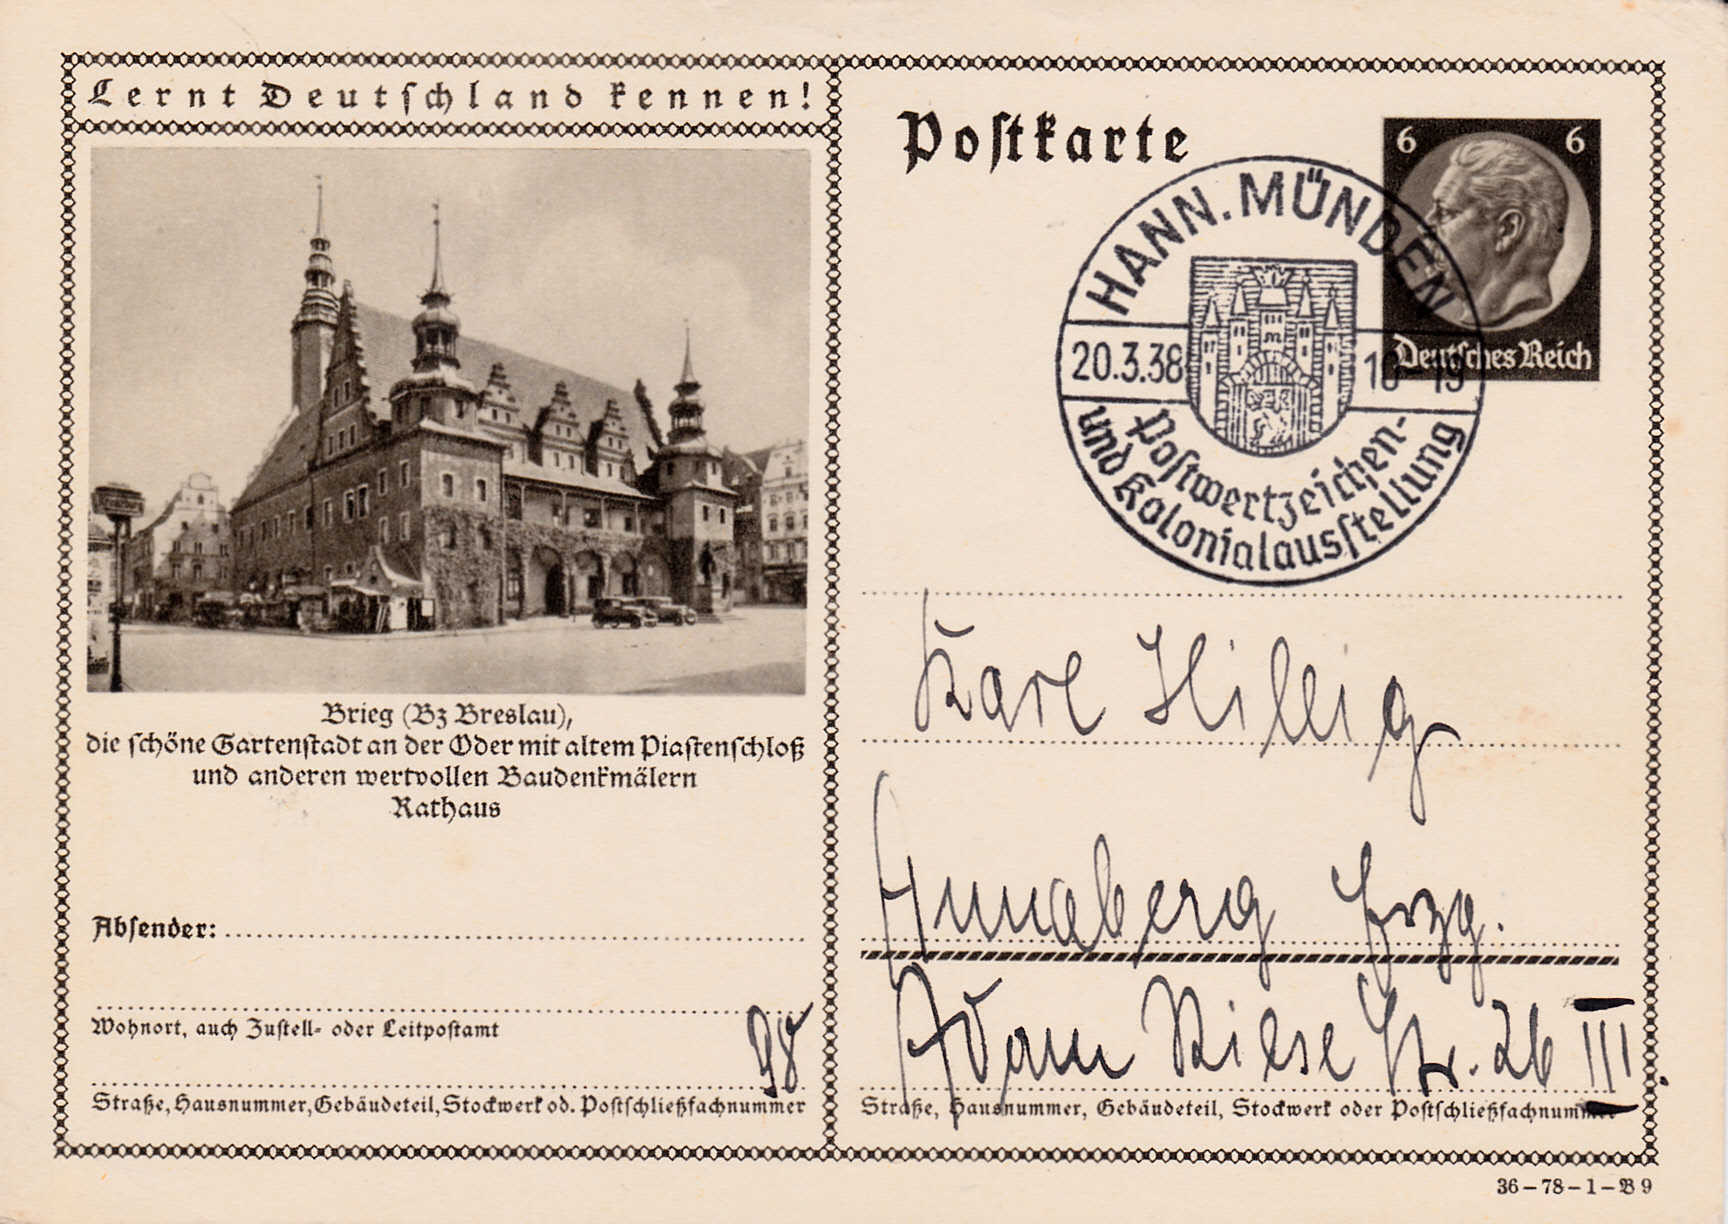 Lernt Deutschland kennen!
Brieg (Bz Breslau),
die schöne Gartenstadt an der Oder mit altem Piastenschloß
und anderen wertvollen Baudenkmälern
Rathaus
Absender:
Wohnort, auch Zustell- oder Leitpostamt
98
Straße, Hausnummer, Gebäudeteil, Stockwerk od. Postschließfachnummer
Postkarte
6 6
Deutsches Reich
HANN. MÜNDEN
20.3.38
Postwertzeichen-
und Kolonialausstellung
Karl Hillig
Annaberg Erzg.
Adam Riese Str. 26 III.
Straße, Hausnummer, Gebäudeteil, Stockwerk oder Postschließfachnummer
36-78-1-B9